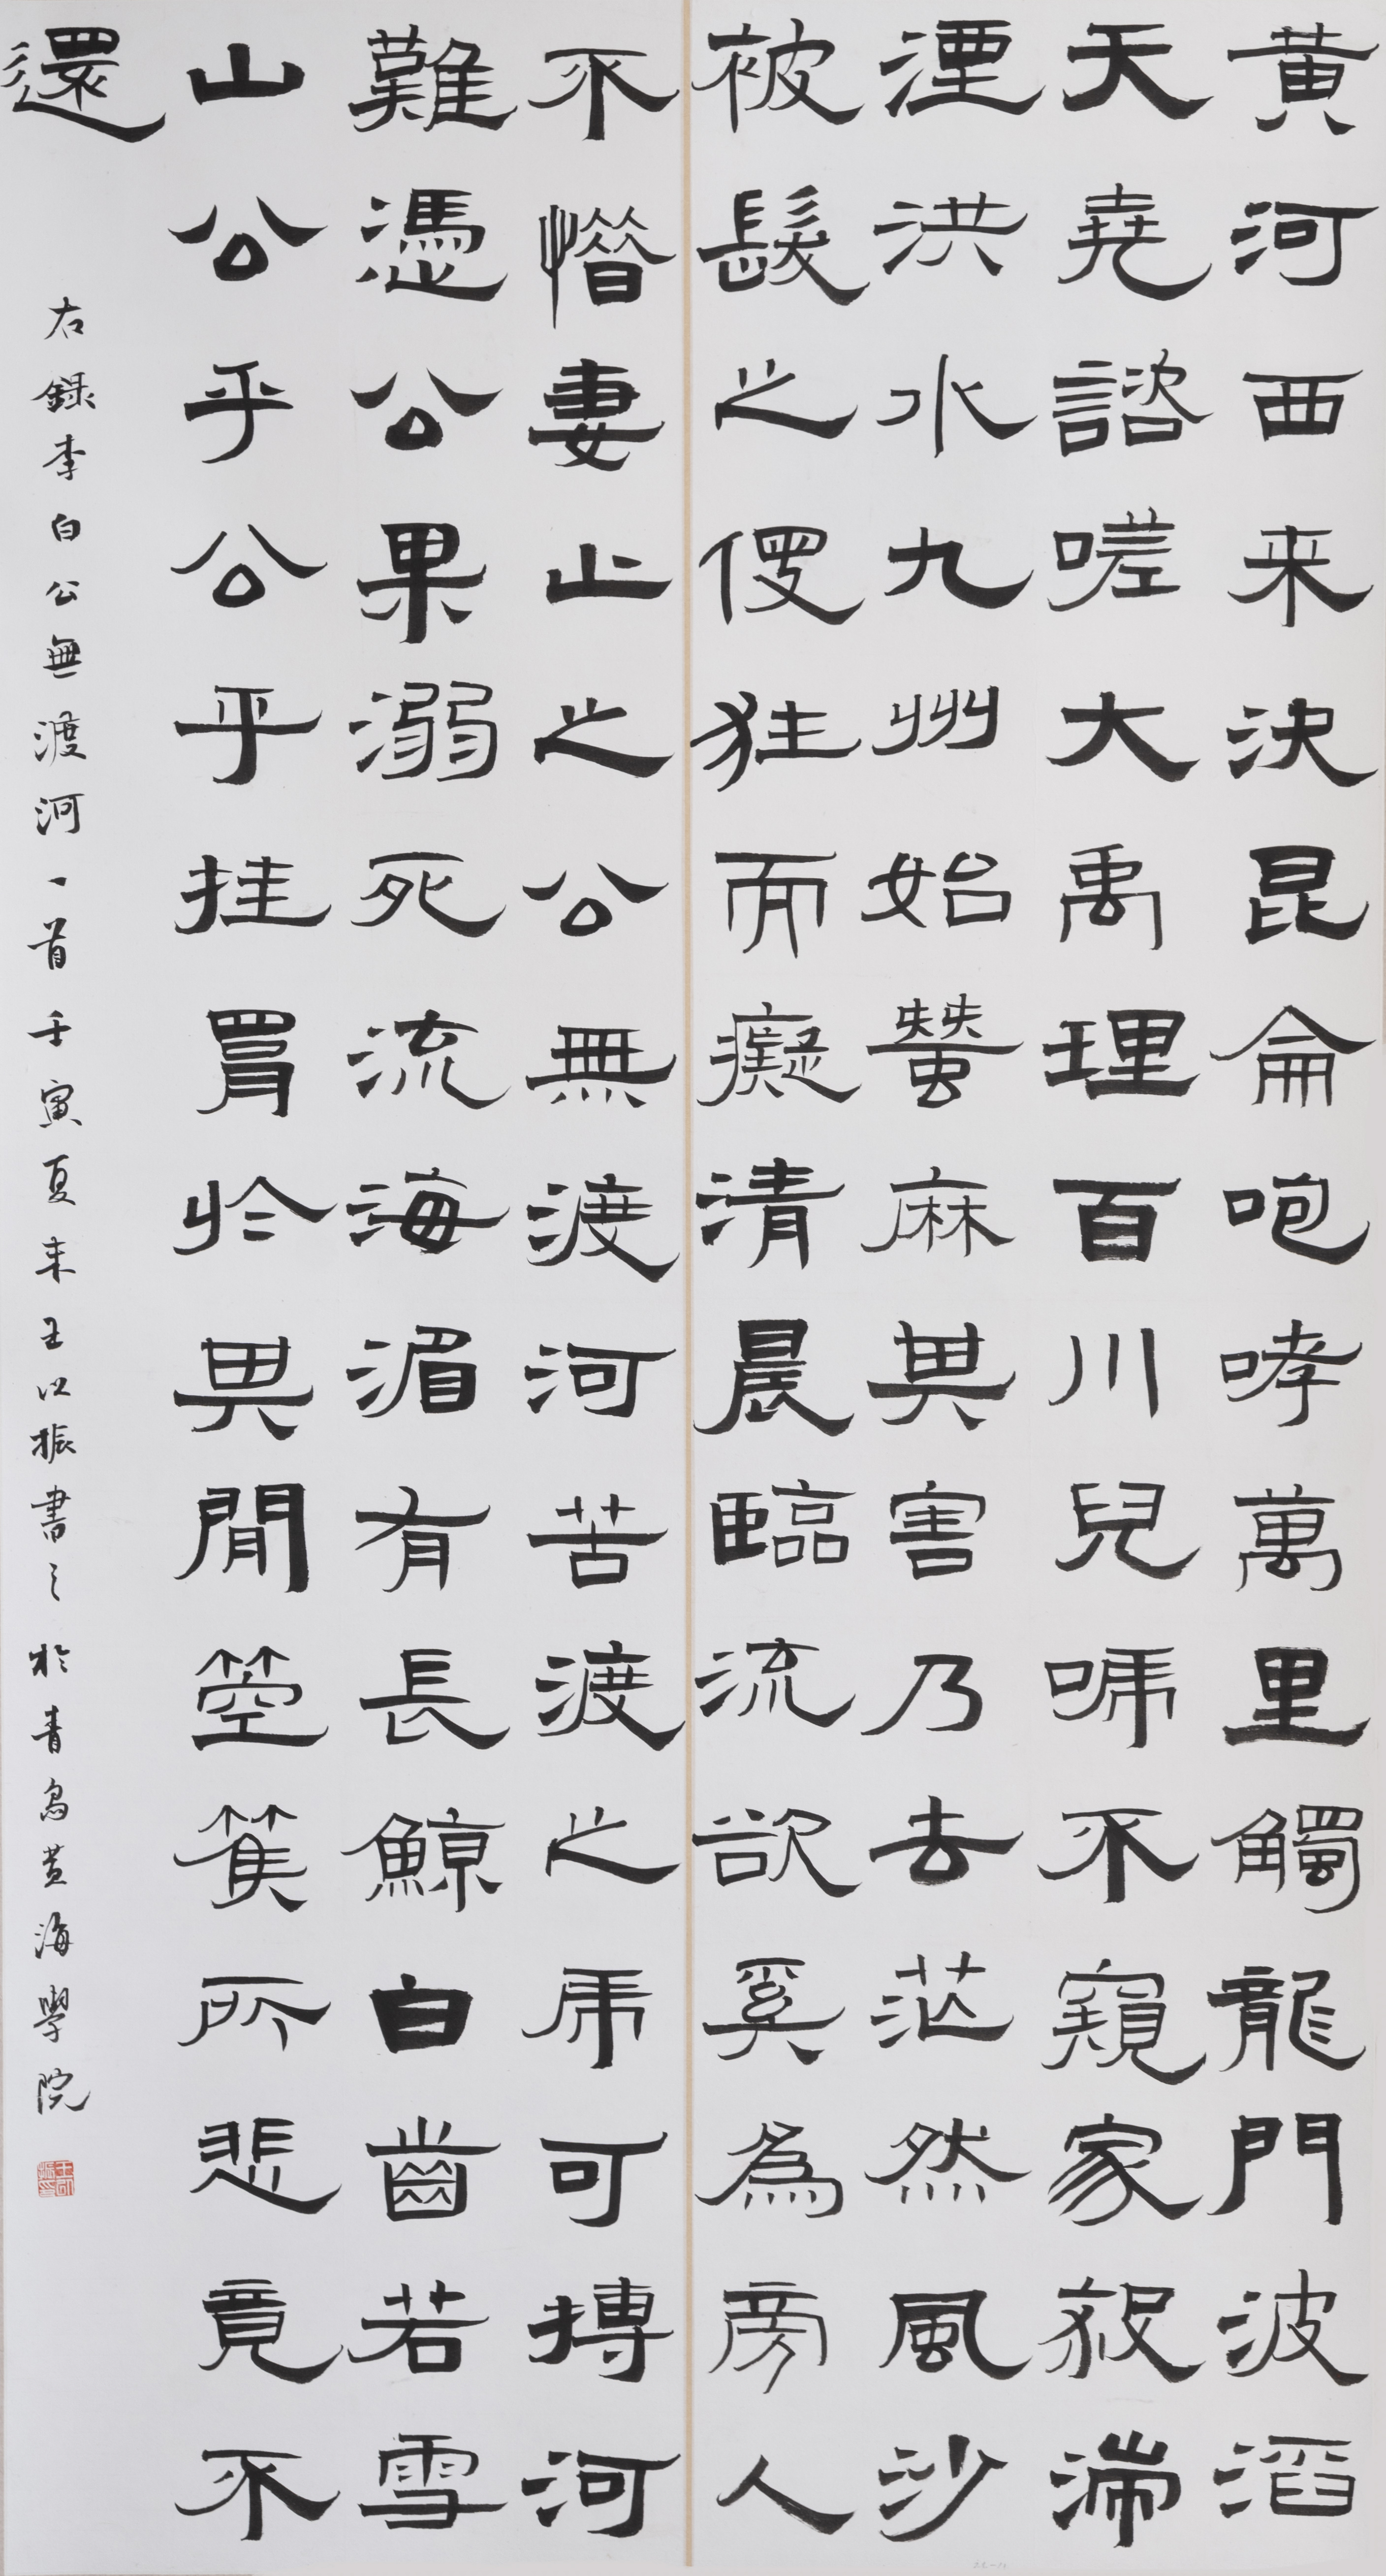 黄河西来決昆侖咆哮萬里觸龍門波滔
天堯諮嗟大禹理百川兒啼不窺家殺湍
湮洪水九州始蠶麻其害乃去茫然風沙
被髮之叟狂而癡清晨臨流欲奚為旁人
不惜妻止之公無渡河苦渡之虎可搏河
難憑公果溺死流海湄有長鯨白齒若雪
山公乎公乎挂罥於其間箜篌所悲竟不
還
右錄李白公無渡河一首壬寅夏末王以振書之於青島黃海學院